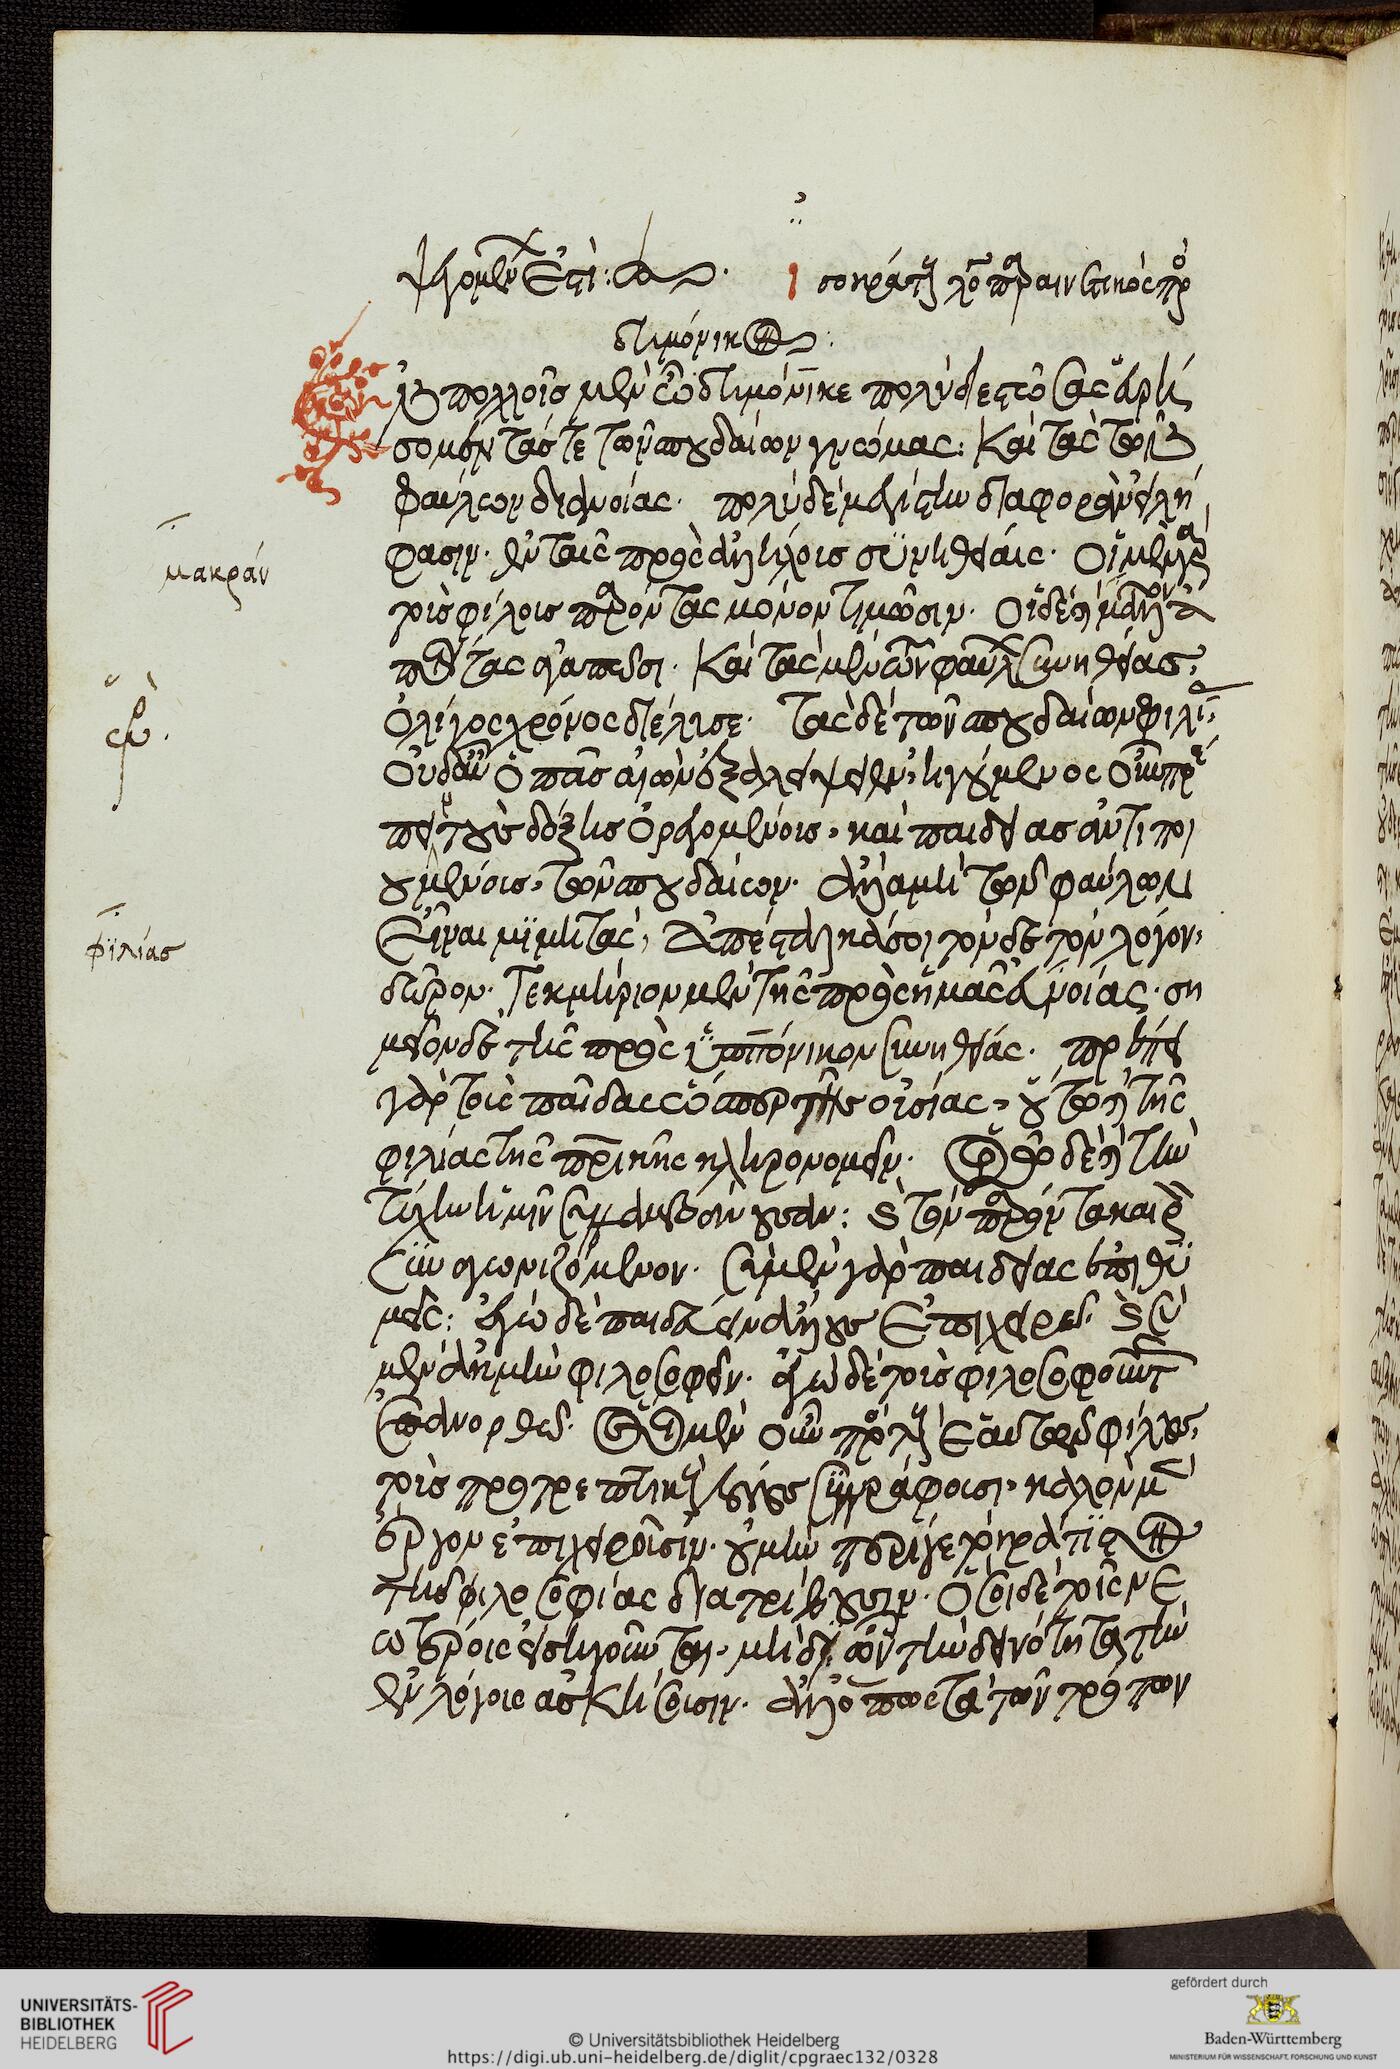 Ἰσοκράτους λόγος παραινετικὸς πρὸς
δημόνικον
Ἐν πολλοῖς μὲν ὦ δημόνικε πολὺ διεστώσας εὑρή
σομεν τάς τε τῶν σπουδαίων γνώμας. καὶ τὰς τῶν
φαύλων διανοίας. πολὺ δὲ μεγίστην διαφορὰν εἰλή
φασιν. ἐν ταῖς πρὸς ἀλλήλους συνηθείαις. οἱ μὲν γὰρ
μακράν
τοὺς φίλους παρόντας μόνον τιμῶσιν. οἱ δὲ καὶ μακρὰν ἀ
πόντας ἀγαπῶσι. καὶ τὰς μὲν τῶν φαύλων συνηθείας,
ὀλίγος χρόνος διέλυσε. τὰς δὲ τῶν σπουδαίων φιλίας,
οὐδ' ἂν ὁ πᾶς αἰὼν ἐξαλείψειεν, ἡγούμενος οὖν πρέ
πειν τοὺς δόξης ὀρεγομένους, καὶ παιδείας ἀντιποι
ουμένους, τῶν σπουδαίων. ἀλλὰ μὴ τῶν φαύλων
φιλίας
εἶναι μιμητάς, ἀπέσταλκά σοι τόνδε τὸν λόγον,
δῶρον. τεκμήριον μὲν τῆς πρὸς ἡμᾶς εὐνοίας. ση
μεῖον δὲ τῆς πρὸς ἱππόνικον συνηθείας. πρέπει
γὰρ τοὺς παῖδας ὥσπερ τῆς οὐσίας, οὕτω καὶ τῆς
φιλίας τῆς πατρικῆς κληρονομεῖν. ὁρῶ δὲ καὶ τὴν
τύχην ἡμῖν συλλαμβάνουσαν. καὶ τὸν παρόντα καιρὸν
συναγωνιζόμενον. σὺ μὲν γὰρ παιδείας ἐπιθυ
μεῖς. ἐγὼ δὲ παιδεύειν ἄλλους ἐπιχειρῶ. καὶ σοὶ
μὲν ἀκμὴν φιλοσοφεῖν. ἐγὼ δὲ τοὺς φιλοσοφοῦντας
ἐπανορθῶ. ὅσοι μὲν οὖν πρὸς τοὺς ἑαυτῶν φίλους,
τοὺς προτρεπτικοὺς λόγους συγγράφουσι, καλὸν μὲν
ἔργον ἐπιχειροῦσιν. οὐ μὴν περί γε τὸ κράτιστον
τῆς φιλοσοφίας διατρίβουσιν. ὅσοι δὲ τοῖς νε
ωτέροις εἰσηγοῦνται, μὴ δι' ὧν τὴν δεινότητα τὴν
ἐν λόγοις ἀσκήσουσιν. ἀλλ' ὅπως τὰ τῶν τρόπων
UNIVERSITÄTS-
BIBLIOTHEK
HEIDELBERG
© Universitätsbibliothek Heidelberg
https://digi.ub.uni-heidelberg.de/diglit/cpgraec132/0328
gefördert durch
Baden-Württemberg
MINISTERIUM FÜR WISSENSCHAFT, FORSCHUNG UND KUNST